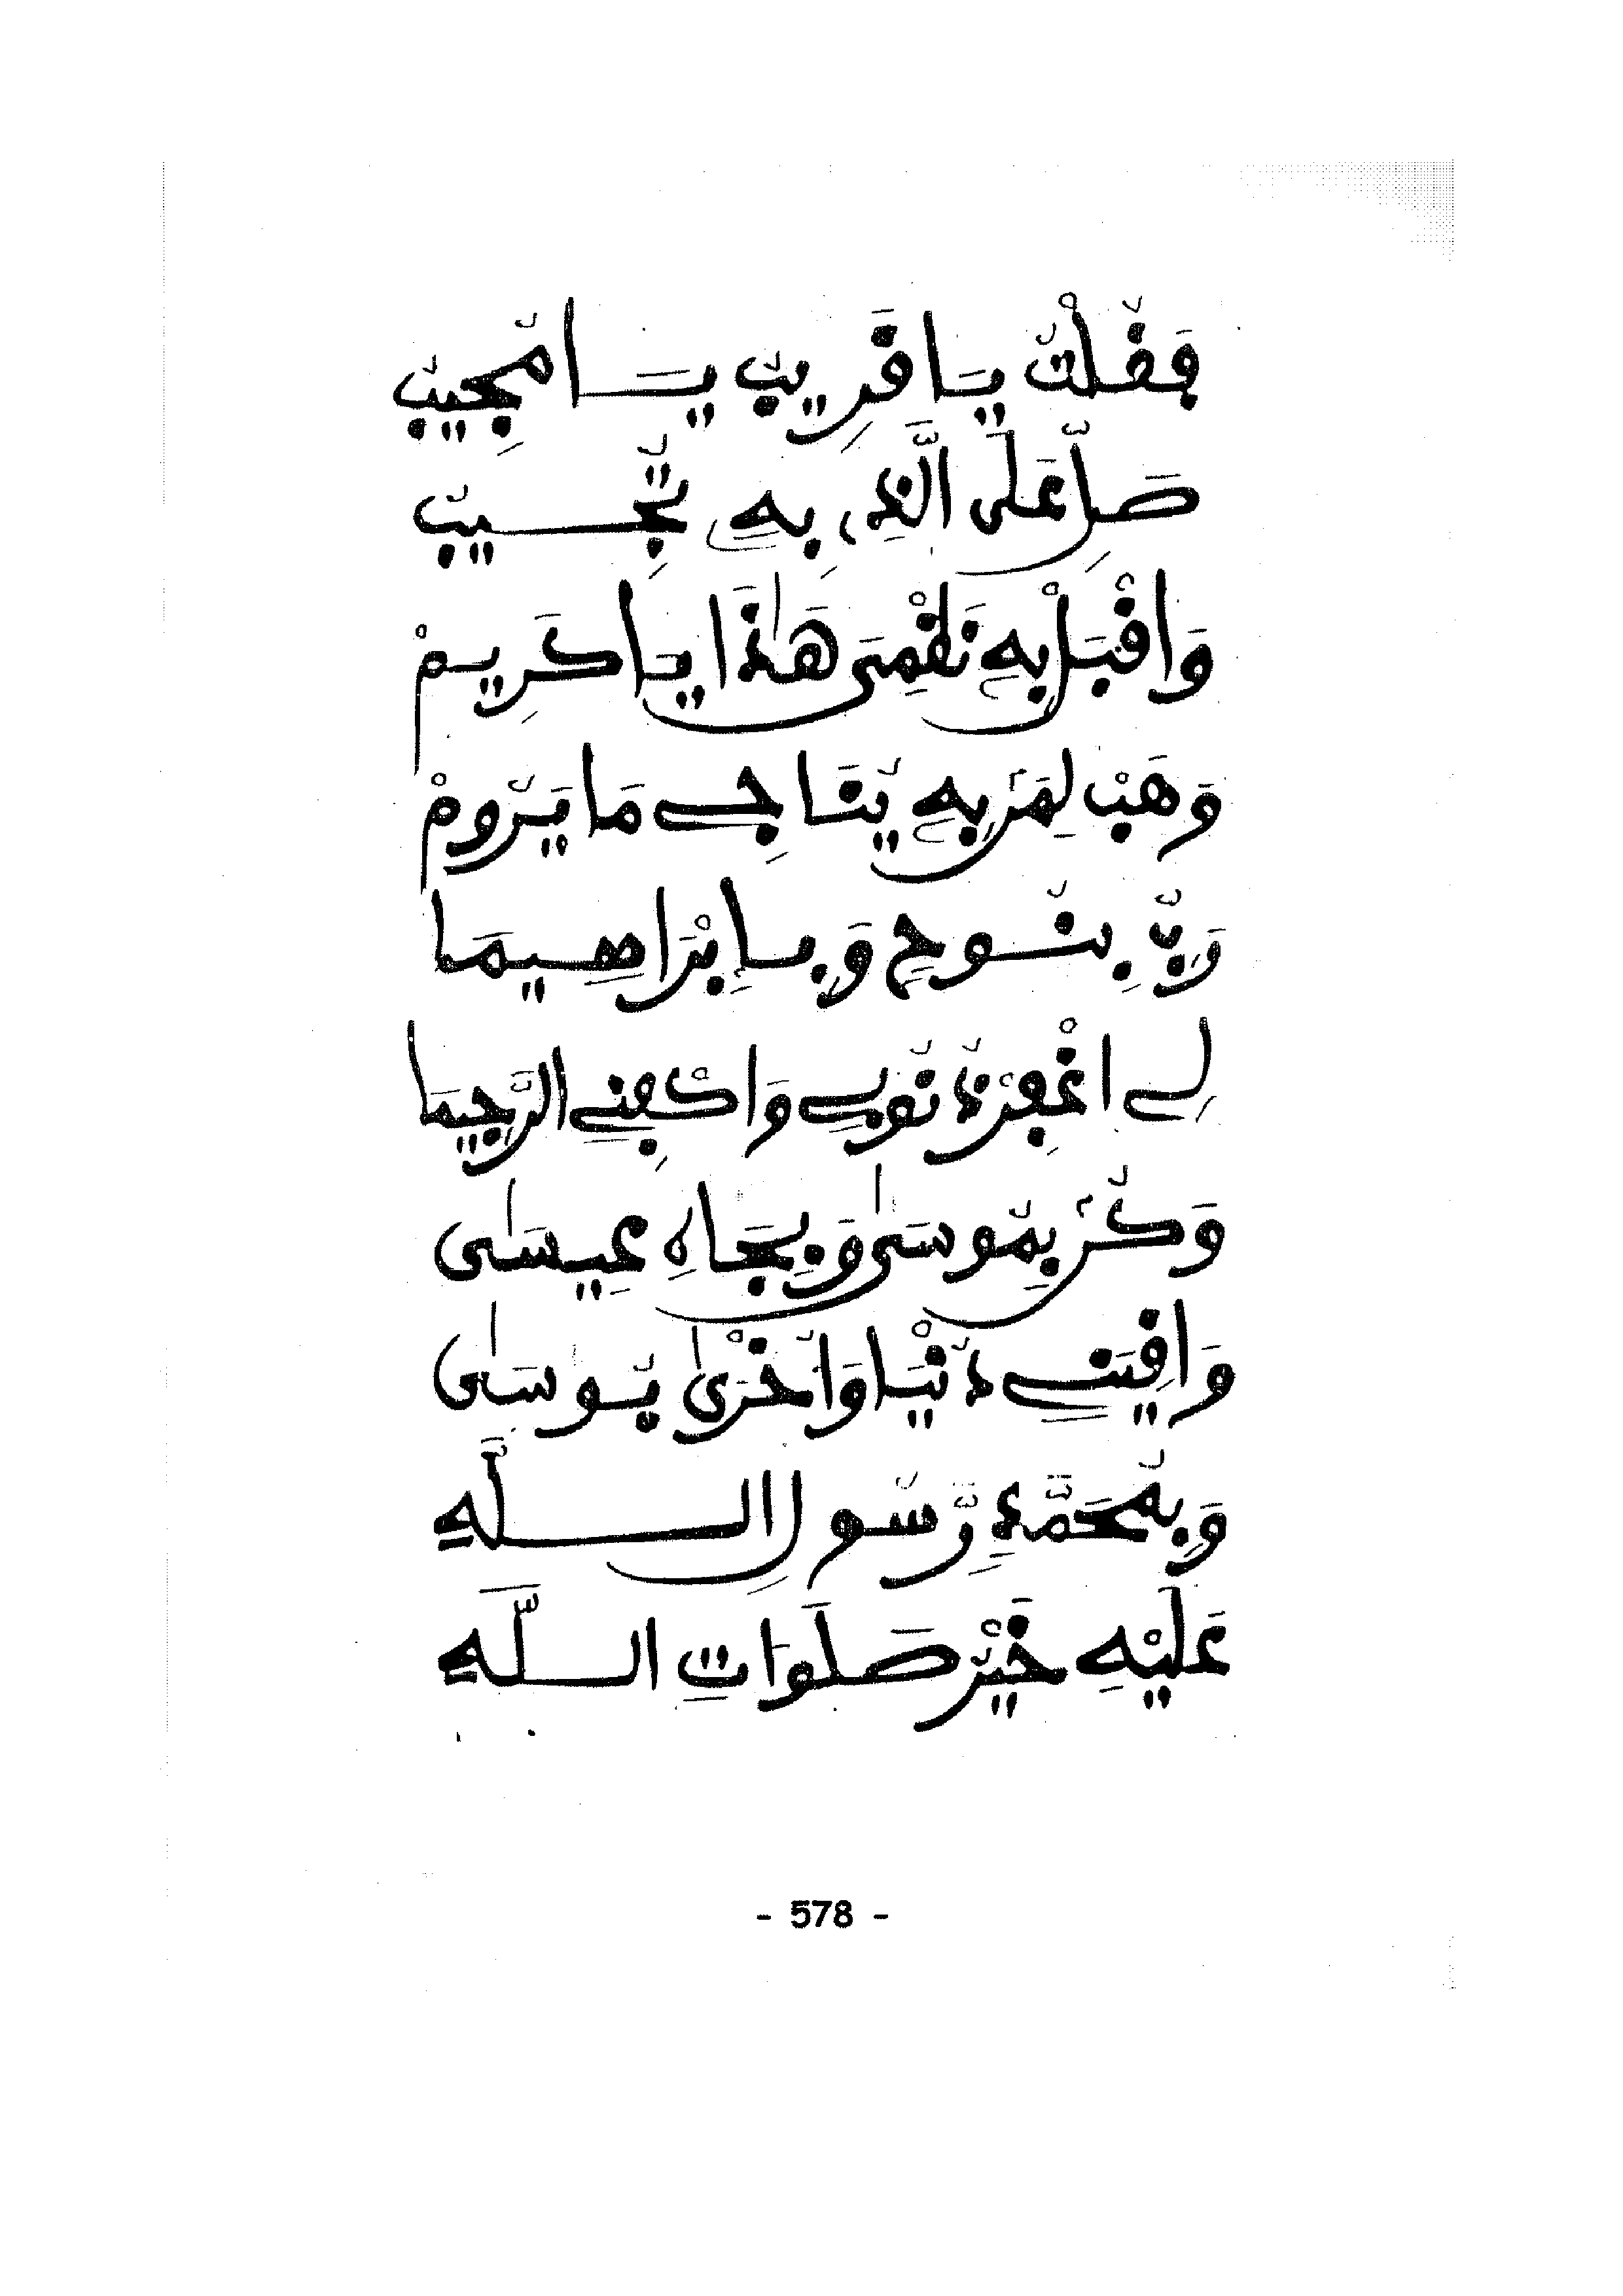 فَقُلْتُ يَا قَرِيبُ يَا مُجِيبُ
صَلِّ عَلَى الَّذِي بِهِ تُجِيبُ
وَاقْبَلْ بِهِ نَظْمِي هَٰذَا يَا كَرِيمْ
وَهَبْ لِمَنْ بِهِ يُنَاجِي مَا يَرُومْ
وَرَبِّ بِنُوحٍ وَبِإِبْرَاهِيمَا
لِي اغْفِرْ ذُنُوبِي وَاكْفِنِي الرَّجِيمَا
وَكُنْ بِمُوسَىٰ وَبِجَاهِ عِيسَىٰ
وَاقِيَنِي دُنْيَا وَأُخْرَىٰ بُوسَىٰ
وَبِمُحَمَّدٍ رَّسُولِ اللَّهِ
عَلَيْهِ خَيْرُ صَلَوَاتِ اللَّهِ
- 578 -